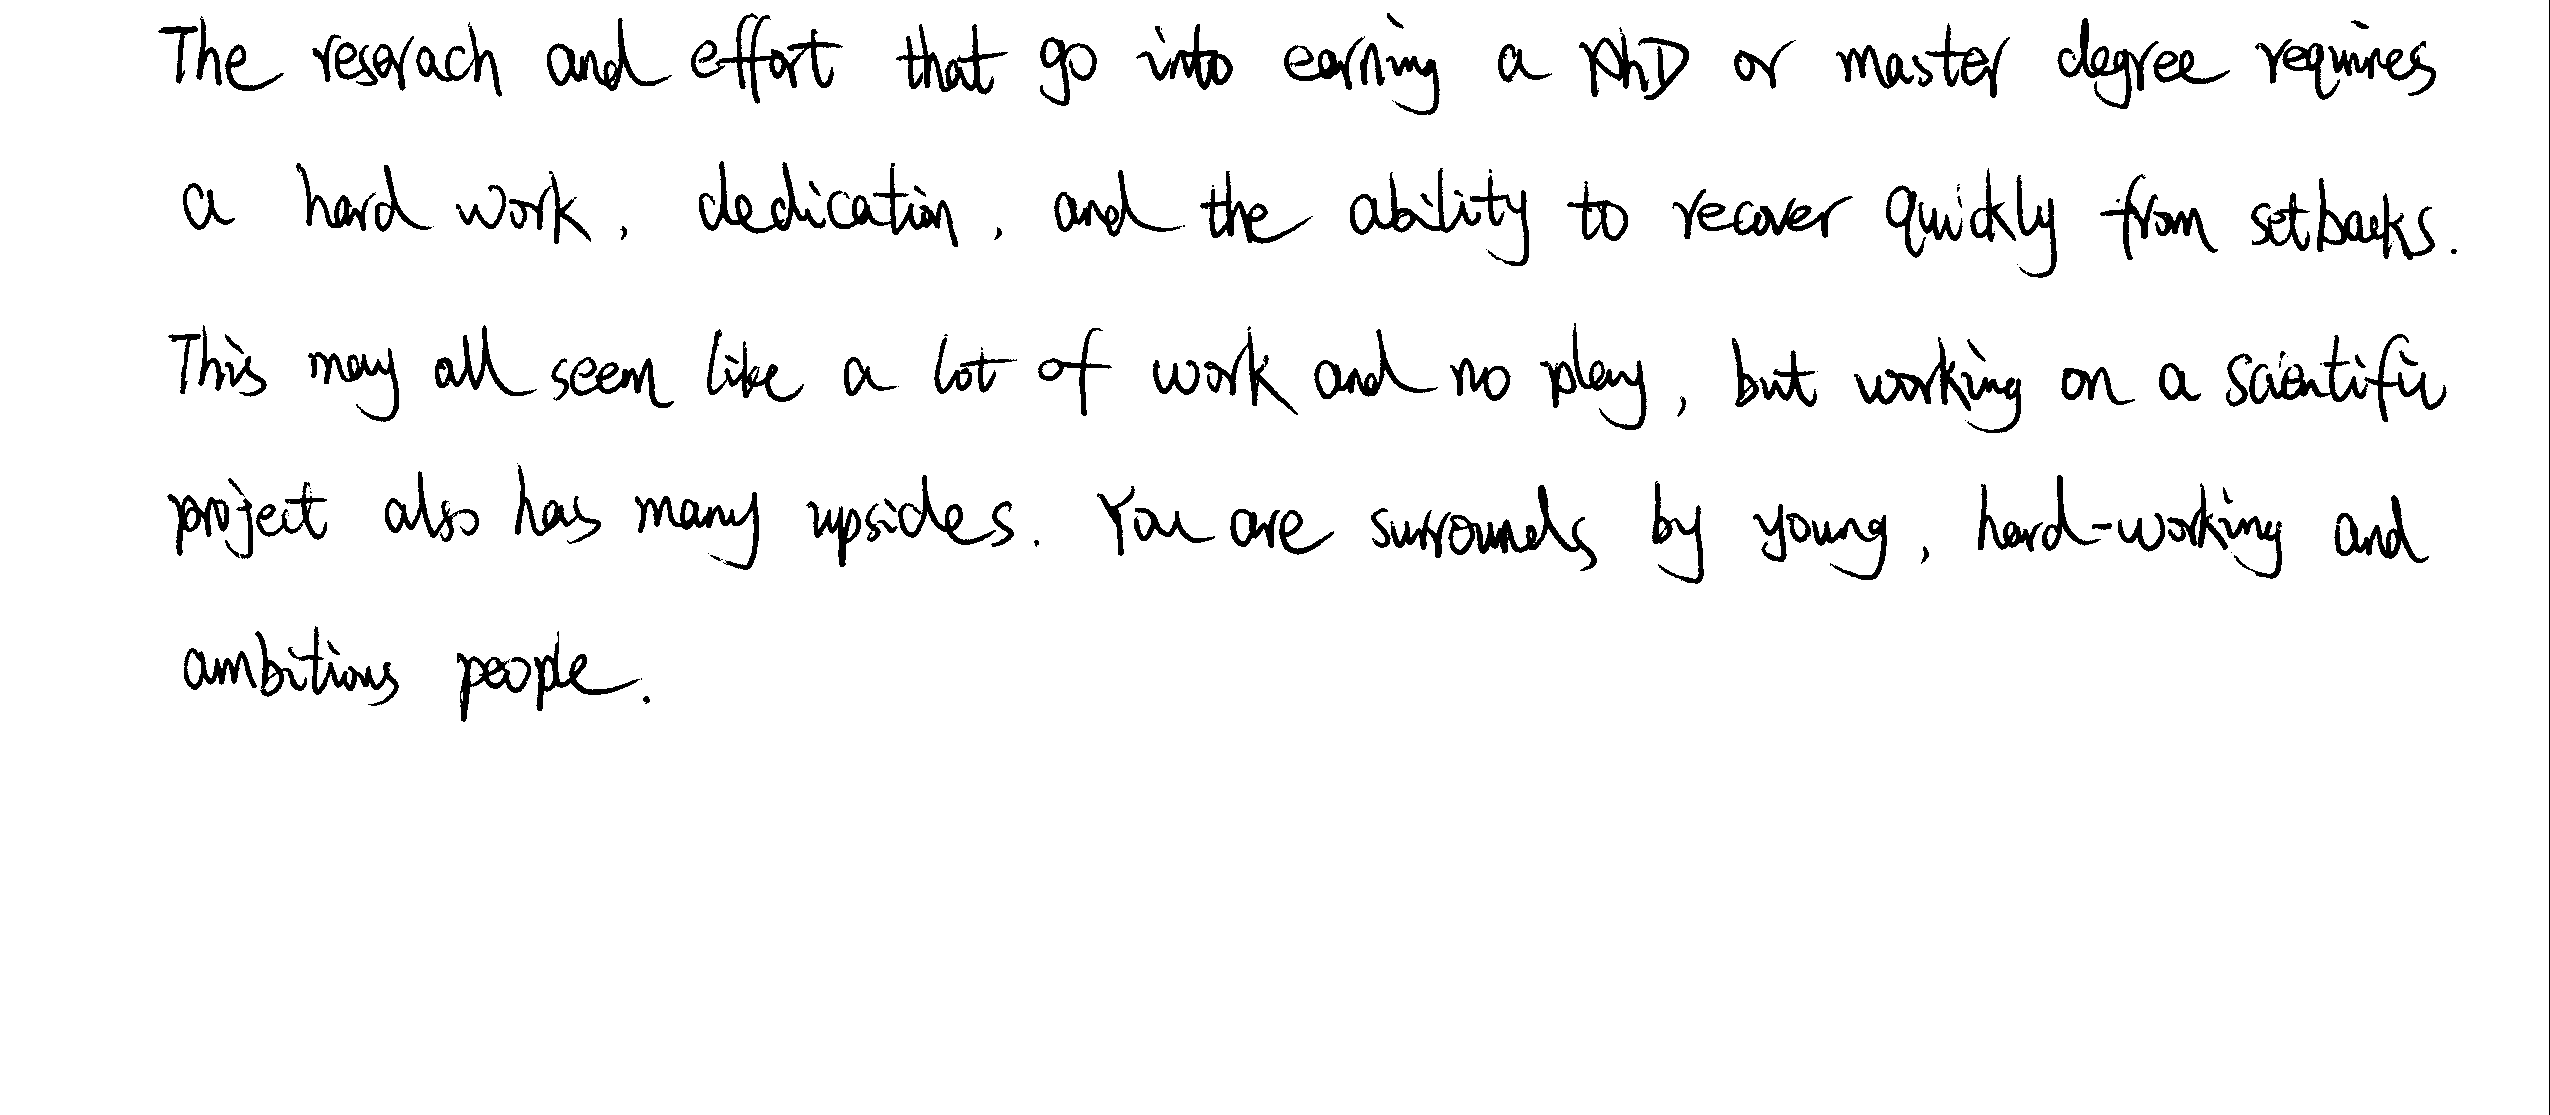 The reserach and effort that go into earning a PhD or master degree requires
a hard work, dedication, and the ability to recover quickly from setbacks.
This may all seem like a lot of work and no play, but working on a scientific
project also has many upsides. You are surrounds by young, hard-working and
ambitious people.